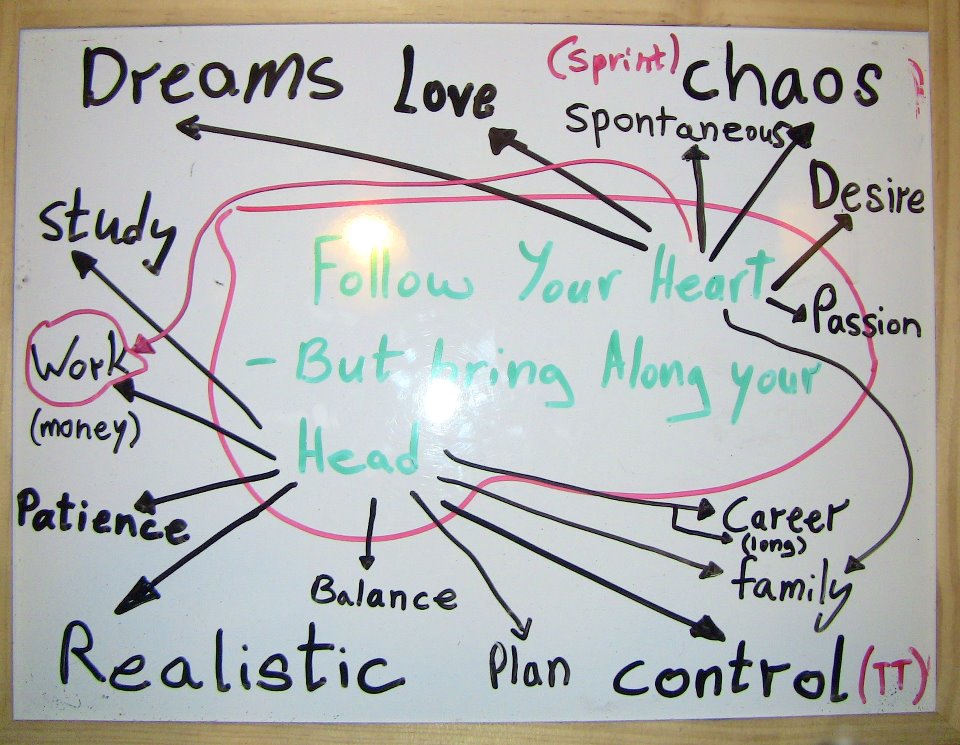 Dreams
Love
(sprint)
chaos
Spontaneous
Desire
study
Follow Your Heart
Passion
Work
- But bring Along your
(money)
Head
Patience
Career
(long)
family
Balance
Realistic
Plan
control
(TT)